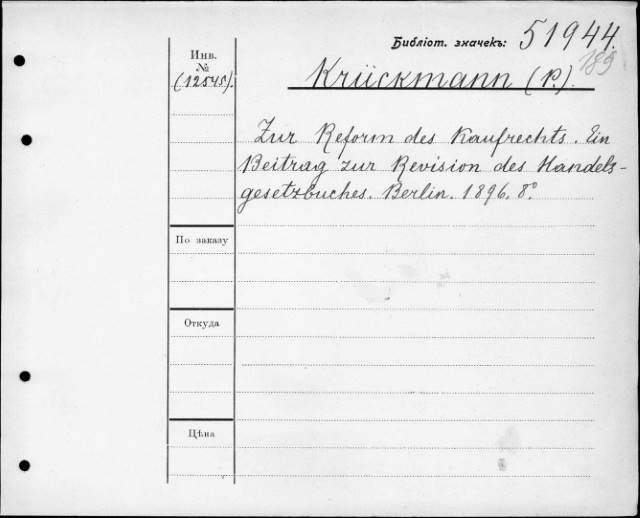 Библіот. значекъ: 51944.
189
Инв.
№
(12545).
Krückmann (P.).
Zur Reform des Kaufrechts. Ein
Beitrag zur Revision des Handels-
gesetzbuches. Berlin. 1896. 8°.
По заказу
Откуда
Цѣна